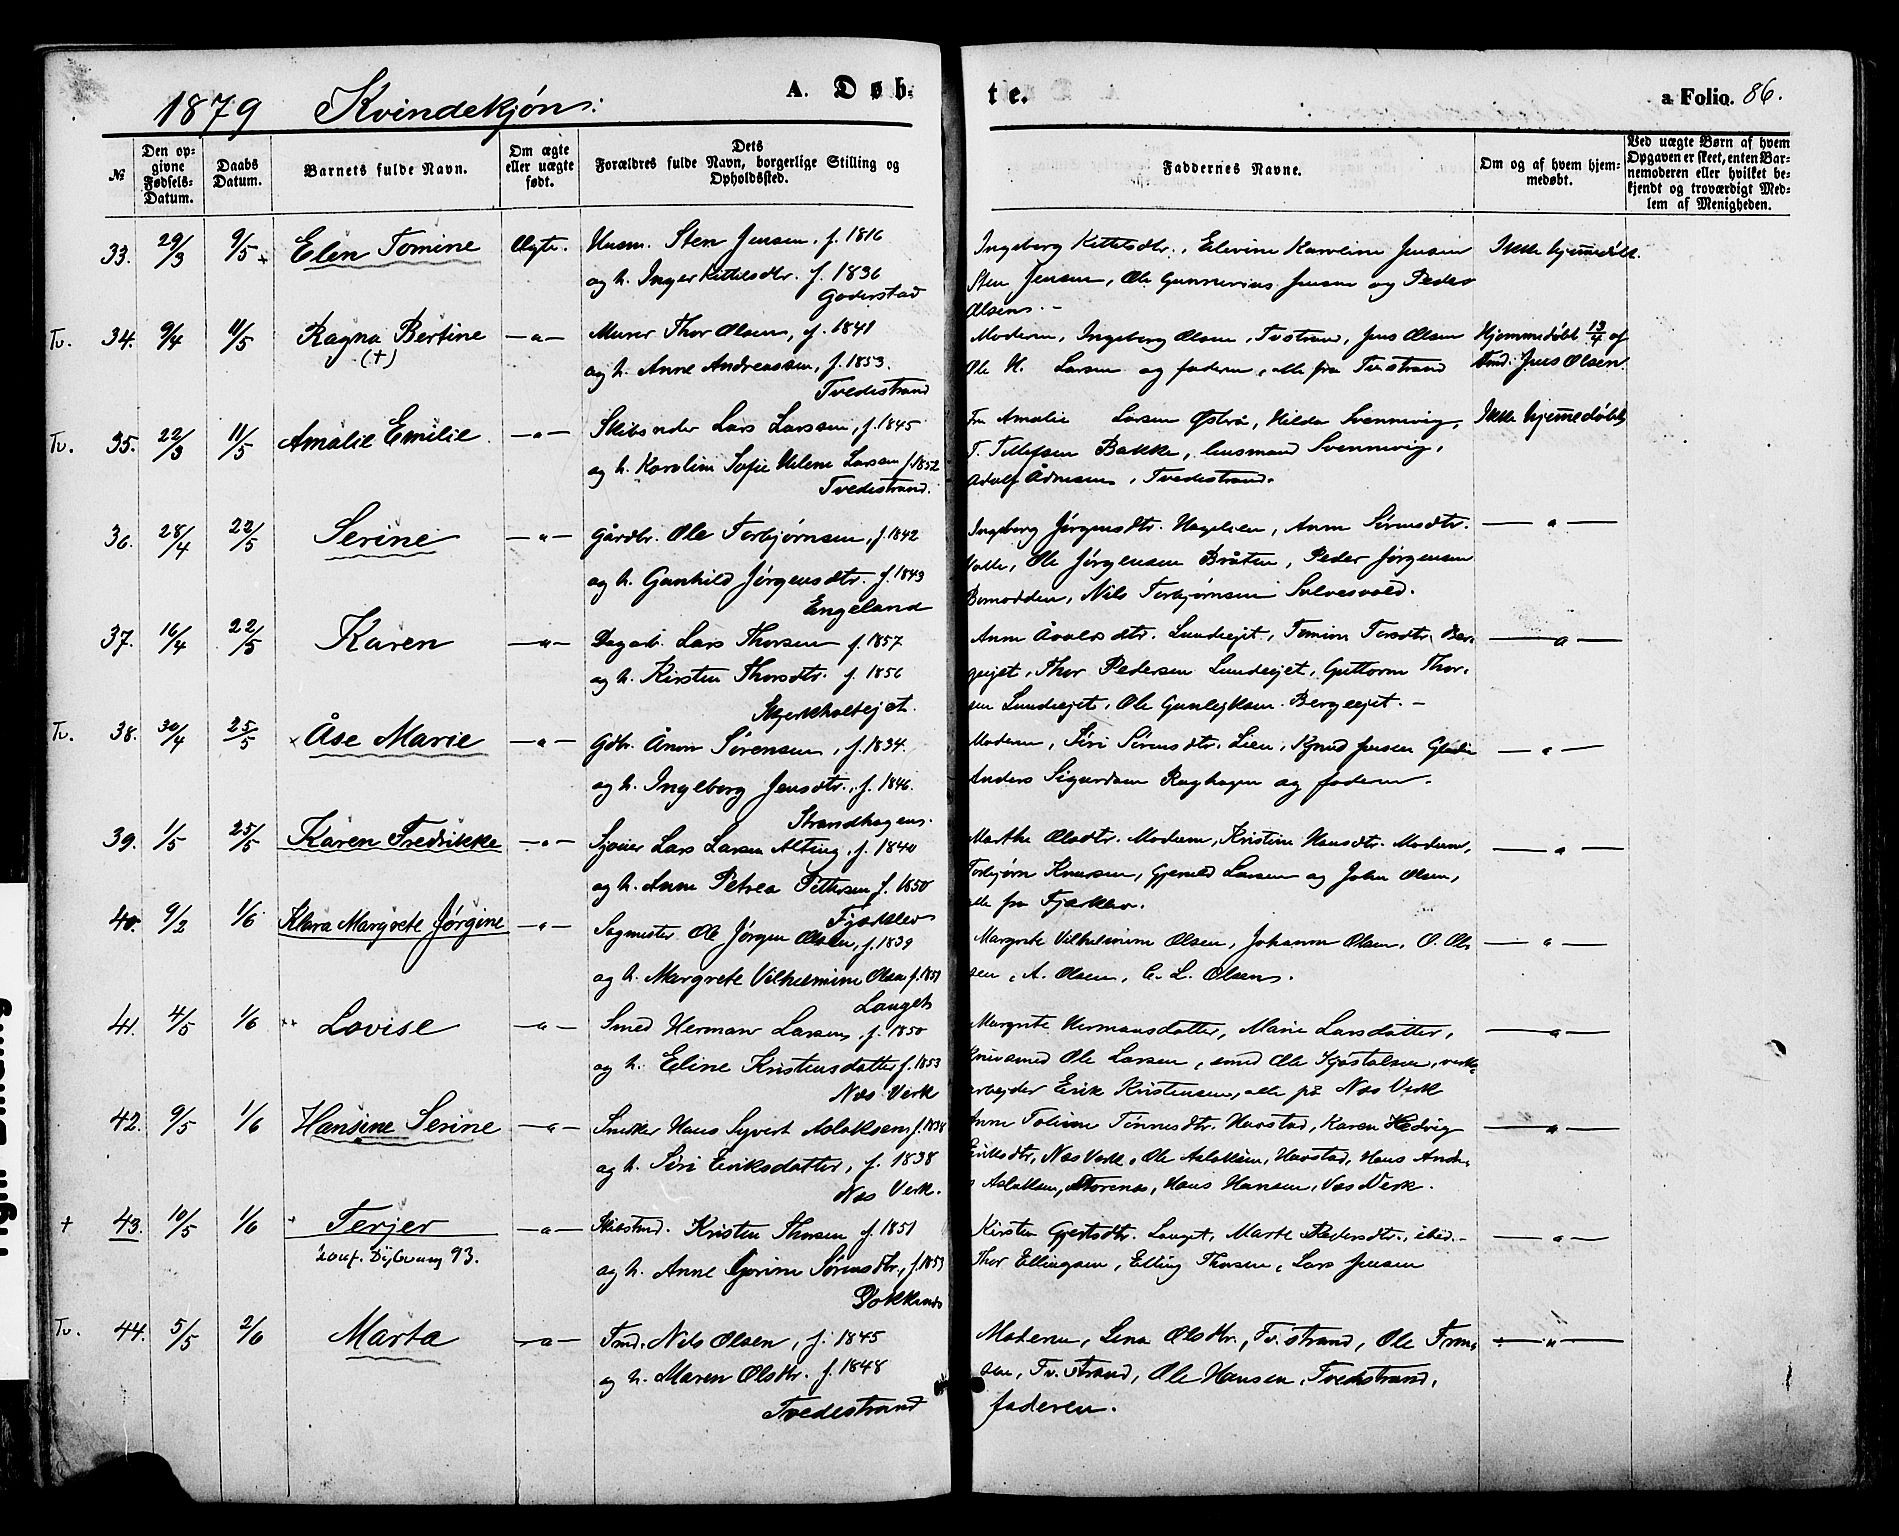 1879 Kvindekjøn:
A. Døb-
te.
a Folio. 86.
№
Den op-
givne
Fødsels-
Datum.
Daabs
Datum.
Barnets fulde Navn.
Om ægte
eller uægte
født.
Dets
Forældres fulde Navn, borgerlige Stilling og
Opholdssted.
Faddernes Navne.
Om og af hvem hjem-
medøbt.
Ved uægte Børn af hvem
Opgaven er skeet, enten Bar-
nemoderen eller hvilket be-
kjendt og troværdigt Med-
lem af Menigheden.
33. 29/3 9/5 Elen Tomine Ægte. Husm. Sten Jensen, f. 1816
og h. Inger Kittelsdtr. f. 1836
Goderstad
Ingeborg Kittelsdtr., Elevine Karoline Jensen
Sten Jensen, Ole Gunnerius Jensen og Peder
Olsen. —
Ikke hjemmedøbt.
Tv. 34. 9/4 11/5 Ragna Bertine — " — Murer Thor Olsen, f. 1841
(+)
og h. Anne Andreassen, f. 1853.
Tvedestrand
Moderen, Ingeborg Olsen, Tvstrand, Jens Olsen
Ole H. Larsen og faderen, alle fra Tvstrand
Hjemmedøbt 13/4 af
Tmd. Jens Olsen.
Tv. 35. 22/3 11/5 Amalie Emilie — " — Skibsreder Lars Larssen, f. 1845
og h. Karoline Sofie Helene Larsen f. 1852
Tvedestrand.
Fru Amalie Larsen Østerå, Hilda Svennevig,
T. Tellefsen Bakke, lensmand Svennevig,
Adolf Ånnesen, Tvedestrand.
Ikke hjemmedøbt
36. 28/4 22/5 Serine — " — Gårdbr. Ole Torbjørnsen, f. 1842
og h. Gunhild Jørgensdtr. f. 1843
Engeland
Ingeborg Jørgensdtr. Hagelien, Anne Sørensdtr.
Valle, Ole Jørgensen Bråten, Peder Jørgensen
Bomodden, Nils Torbjørnsen Solvesvold.
— " —
37. 16/4 22/5 Karen — " — Dagarb. Lars Thorsen f. 1857
og h. Kirsten Thorsdtr. f. 1856
Skjerkholtejet.
Anne Åvalsdtr. Lundeejet, Tomine Torsdtr. Ber-
geejet, Thor Pedersen Lundeejet, Guttorm Thor-
sen Lundeejet, Ole Gunleiksen Bergeejet. —
— " —
Tv. 38. 30/4 25/5 Åse Marie — " — Gdbr. Ånon Sørensen, f. 1834.
og h. Ingeborg Jensdtr., f. 1846.
Strandhagen.
Moderen, Siri Sørensdtr. Lien, Knud Jensen
Anders Sigurdsen Raghagen og faderen.
— " —
39. 1/5 25/5 Karen Fredrikke — " — Sjøm. Lars Larsen Alting, f. 1840
og h. Anne Petrea Pettersen f. 1850
Fjærklev
Marthe Olsdtr. Moderen, Kristine Hansdtr. Moderen,
Torbjørn Knudsen, Gjeruld Larsen og John Olsen,
alle fra Fjærklev.
— " —
40. 9/2 1/6 Klara Margrete Jørgine — " — Sagmester Ole Jørgen Olsen, f. 1839
og h. Margrete Vilhelmine Olsen f. 1851
Langet
Margrete Vilhelmine Olsen, Johanne Olsen, O. Ol-
sen, A. Olsen, C. L. Olsen.
— " —
41. 4/5 1/6 Lovise — " — Smed Herman Larsen, f. 1850
og h. Eline Kristensdatter f. 1853
Næs Verk
Margrete Hermansdatter, Marie Larsdatter,
Knivsmed Ole Larsen, smed Ole Kjøstolsen, verks-
arbejder Erik Kristensen, alle på Næs Verk
— " —
42. 9/5 1/6 Hansine Serine — " — Snedker Hans Syvert Aslaksen f. 1838
og h. Siri Eriksdatter, f. 1838
Næs Verk.
Anne Tomine Tønnesdtr. Havstad, Karen Hedvig
Eriksdtr, Næs Verk, Ole Aslaksen, Havstad, Hans Ander-
s Aslaksen, Storenes, Hans Hansen, Næs Verk.
— " —
+ 43. 10/5 1/6 Terjer — " — Skibstmd. Kristen Thorsen f. 1851
conf. Dybvaag 93.
og h. Anne Gjorine Sørensdtr., f. 1853
Kirsten Gjertsdtr. Langet, Marte Pedersdtr., ibid. —
Thor Ellingsen, Elling Thorsen, Lars Jensen
— " —
Tv. 44. 5/5 2/6 Marta — " — Tmd. Nils Olsen, f. 1845
og h. Maren Olsdtr. f. 1848
Tvedestrand
Moderen, Lena Olsdtr., Tv.strand, Ole
Tv. strand, Ole Hansen, Tvedestrand,
faderen.
— " —